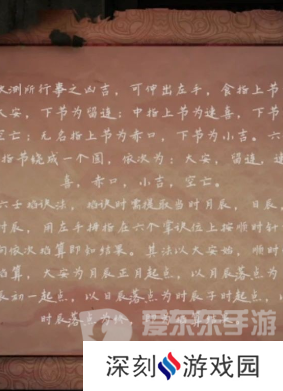 测所行事之凶吉，可伸出左手，食指上节
大安，下节为留连；中指上节为速喜，下节
空亡；无名指上节为赤口，下节为小吉。六
指节绕成一个圆，依次为：大安，留连，速
喜，赤口，小吉，空亡。
六壬掐诀法，掐诀时需提取当时月辰，日辰，
时辰，用左手拇指在六个掌诀位上按顺时针
向依次掐算即知结果。其法以大安始，顺时
掐算，大安为月辰正月起点，以月辰落点为
辰初一起点，以日辰落点为时辰子时起点，
时辰落点为终，
爱乐乐手游
深刻游戏园